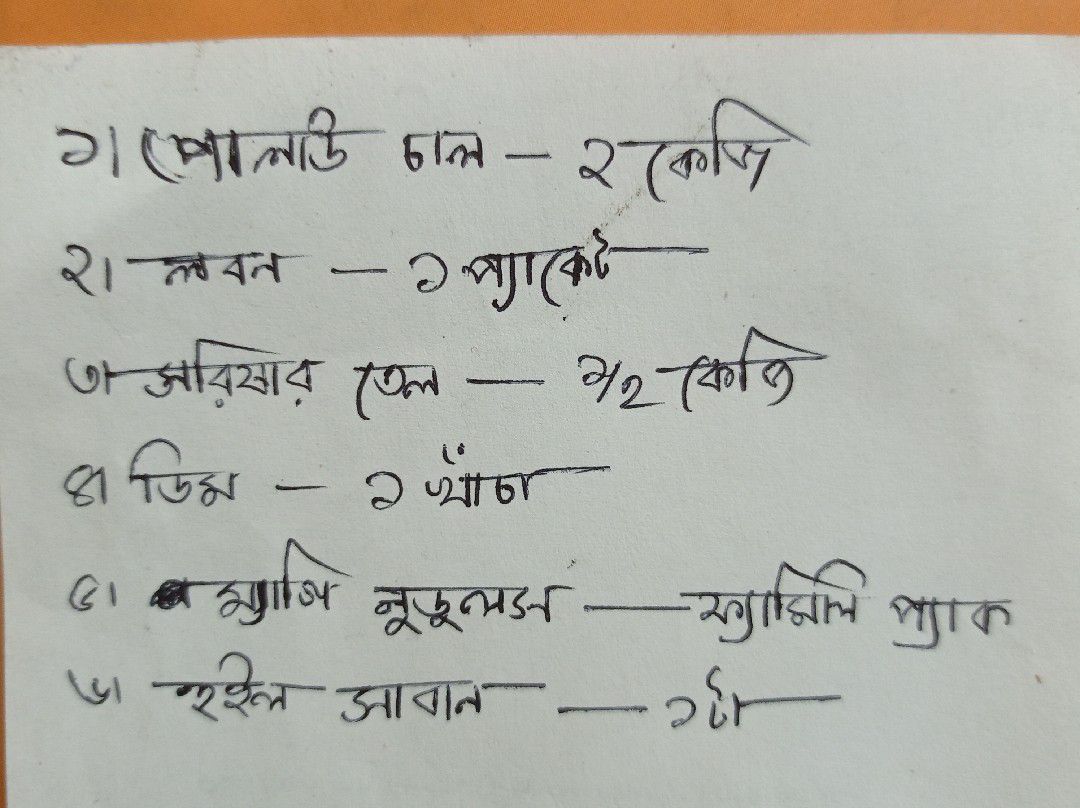 ১। পোলাউ চাল — ২ কেজি
২। লবন — ১ প্যাকেট
৩। সরিষার তেল — ১/২ কেজি
৪। ডিম — ১ খাঁচা
৫। ম্যাগি নুডুলস — ফ্যামিলি প্যাক
৬। হুইল সাবান — ১টা